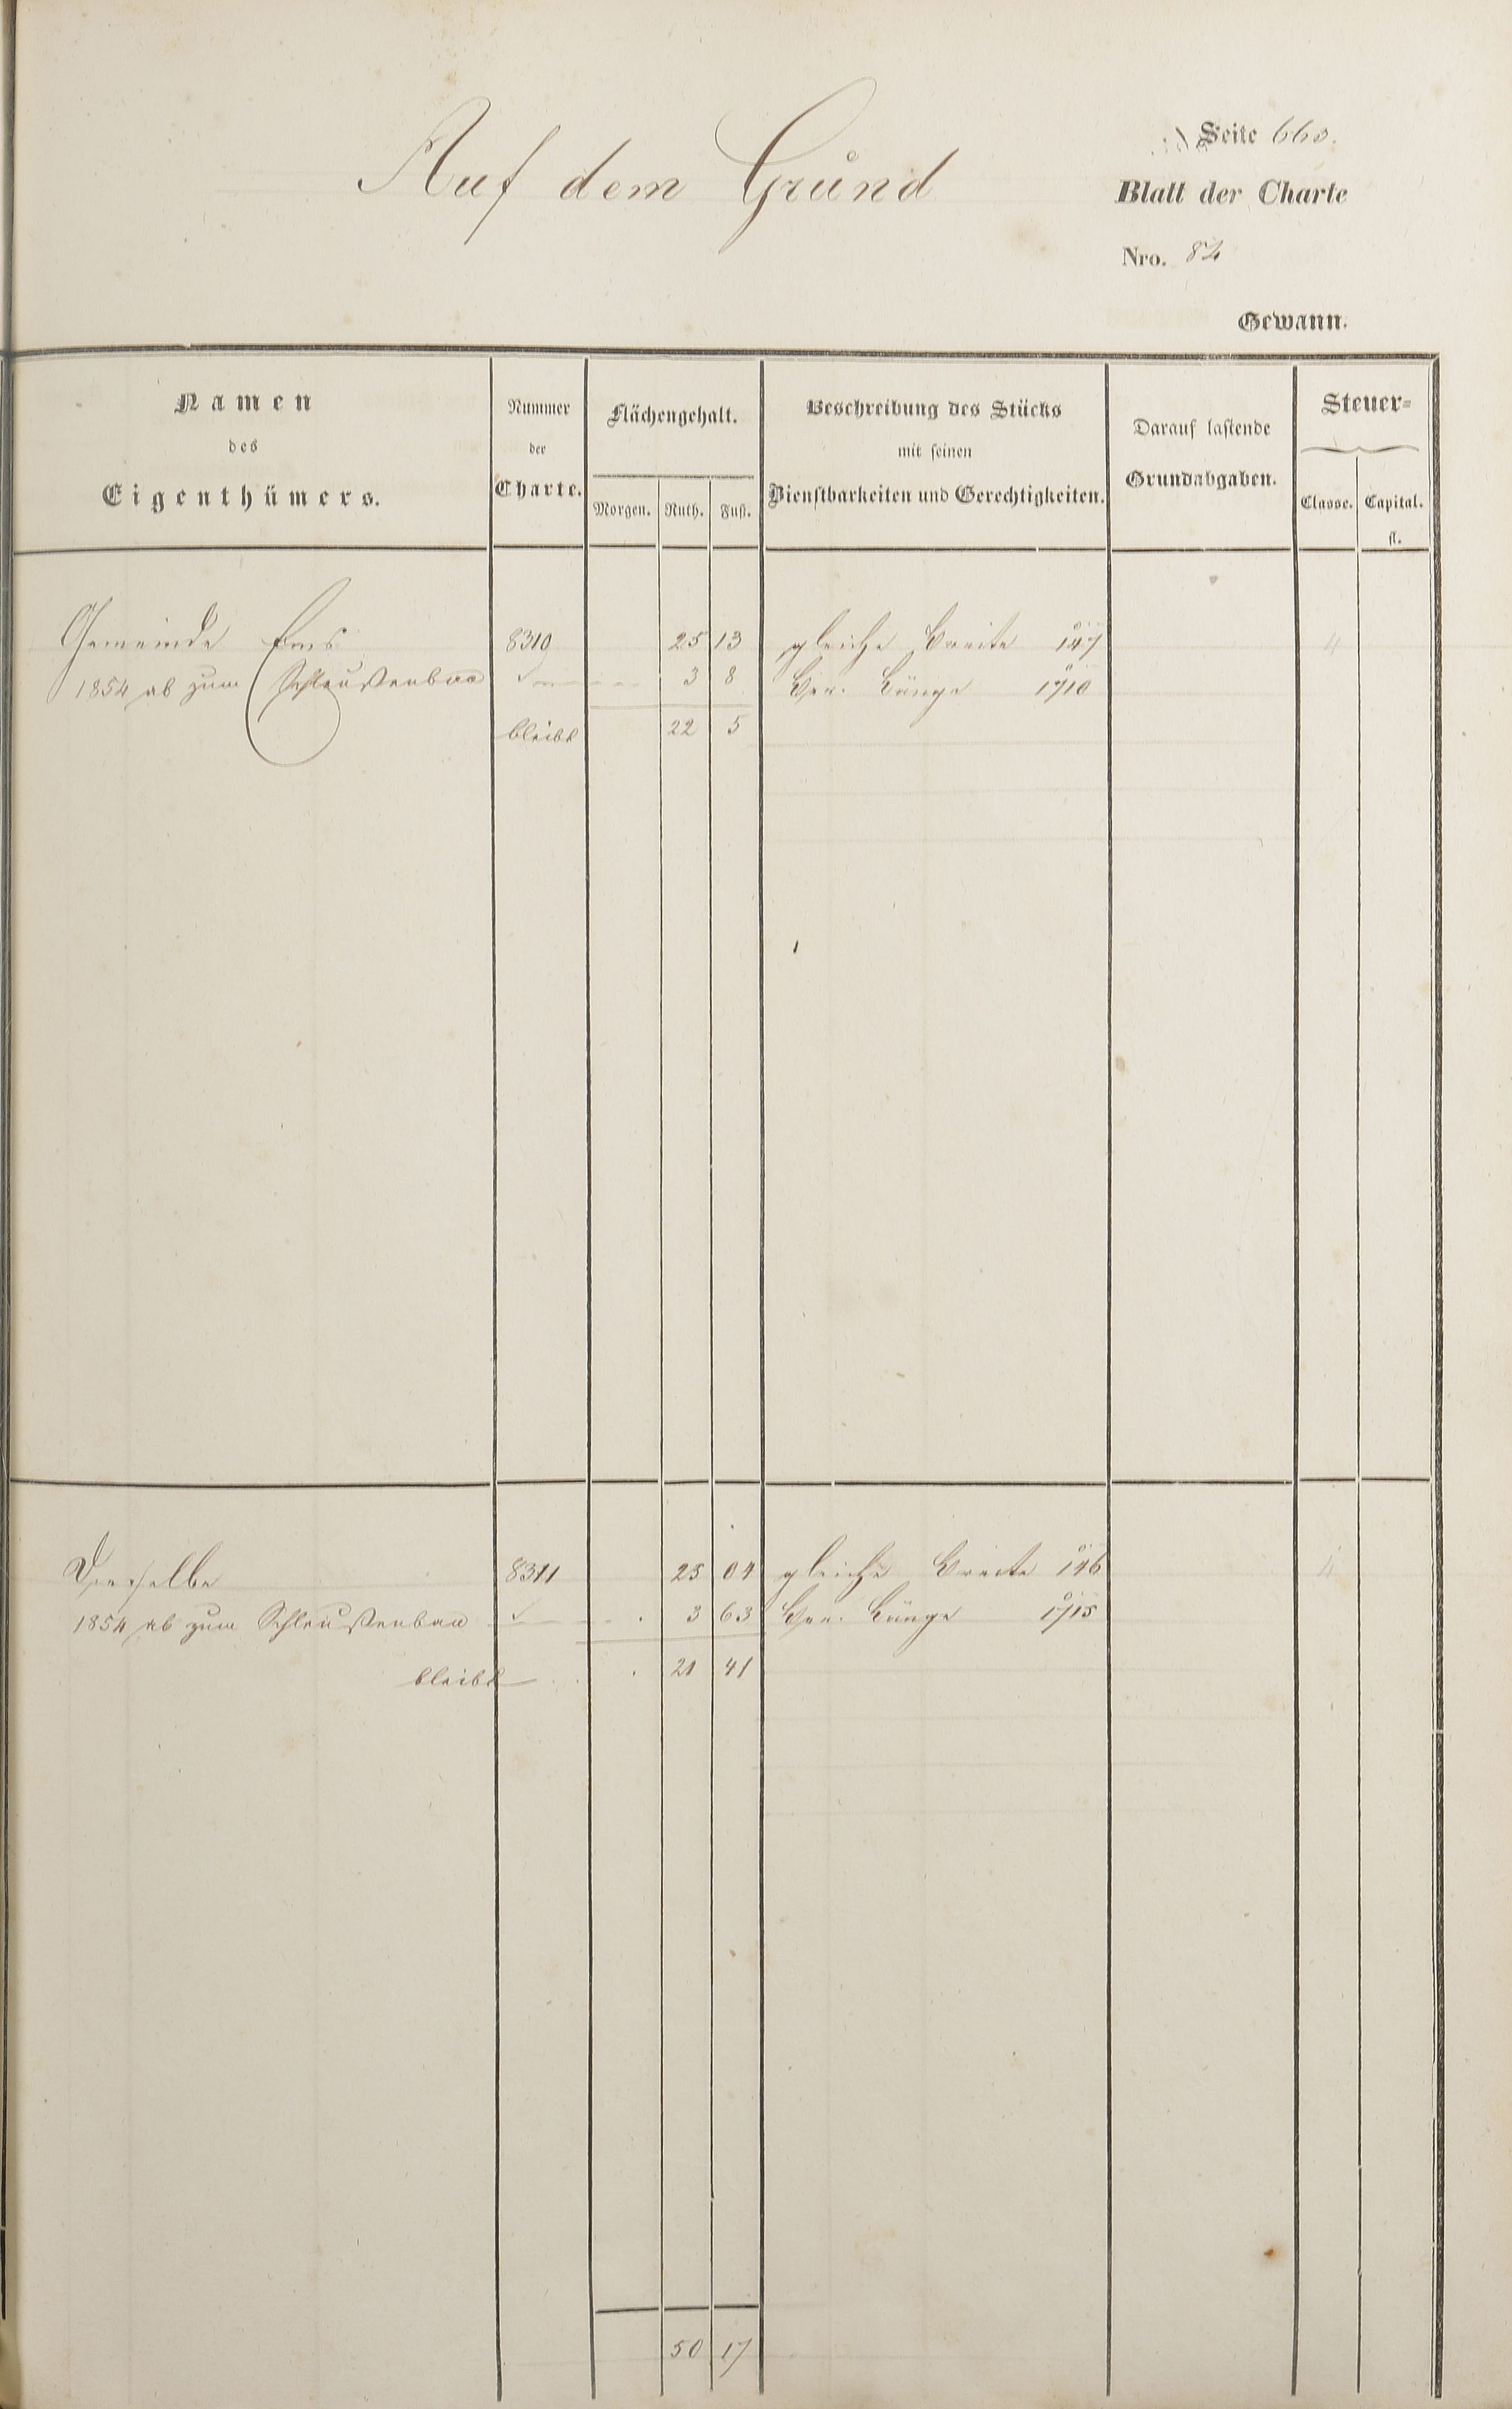 Auf dem Grund
Seite 660.
Blatt der Charte
Nro. 82
Gewann.
Namen
des
Eigenthümers.
Nummer
der
Charte.
Flächengehalt.
Morgen. Ruth. Fuß.
Beschreibung des Stücks
mit seinen
Dienstbarkeiten und Gerechtigkeiten.
Darauf lastende
Grundabgaben.
Steuer-
Classe. Capital.
fl.
Gemeinde Ems 8310 25 13 gleiche Breite 147 4
1854 ab zum Schleußenbau 3 8 Ber. Länge 1710
bleibt 22 5
Derselbe 8311 25 04 gleiche Breite 146 4
1854 ab zum Schleußenbau 3 63 Ber. Länge 1715
bleibt 21 41
50 17